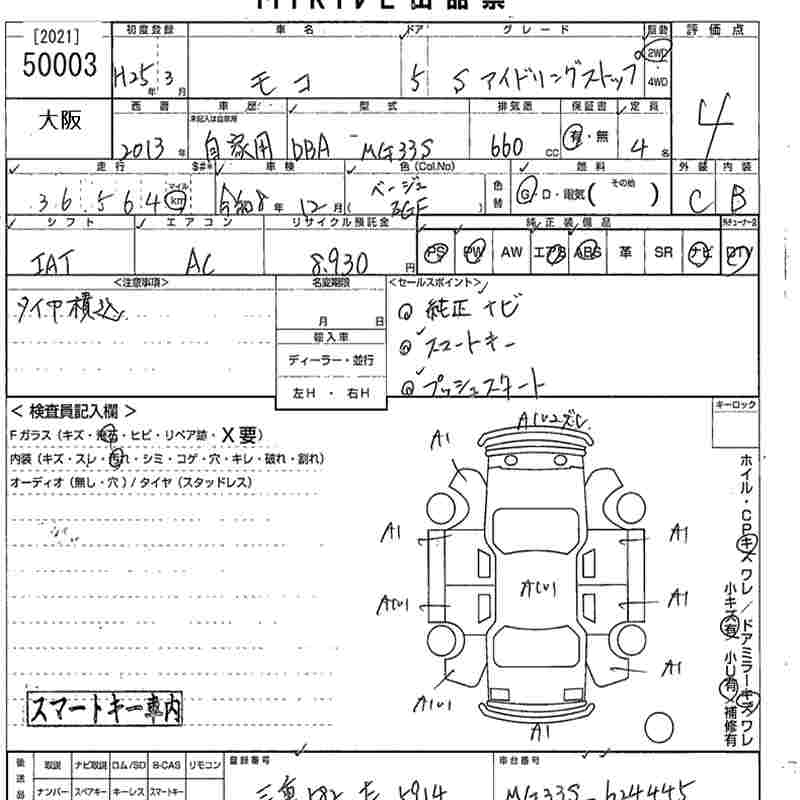 MIRIVE出品票
[2021]
50003
大阪
初度登録 車名 ドア グレード 駆動 評価点
H25年 3月 モコ 5 S アイドリングストップ 2WD 4WD 4
西暦 車歴 型式 排気量 保証書 定員
未記入は自家用
2013年 自家用 DBA-MG33S 660cc 有・無 4名
走行 $#* 車検 色(Col.No) 色替 燃料 外装 内装
36,564 マイル km 令和8年 12月 ベージュ G D・電気( その他 ) C B
シフト エアコン リサイクル預託金 純正装備品
IAT AC 8,930円 PS PW AW エアB ABS 革 SR ナビ DTV
<注意事項> 名変期限 <セールスポイント>
タイヤ積込 月 日 純正ナビ
輸入車 スマートキー
ディーラー・並行 プッシュスタート
左H ・ 右H
< 検査員記入欄 > キーロック
Fガラス (キズ・飛石・ヒビ・リペア跡・X要)
内装 (キズ・スレ・汚れ・シミ・コゲ・穴・キレ・破れ・割れ)
オーディオ (無し・穴) / タイヤ (スタッドレス)
A1
A1 A1
AU1 AU1 A1
AU1 A1
A1
ホイル・CPキズワレ/ドアミラーキズワレ
小キズ有 小U有/補修有
スマートキー車内
後送品 取説 ナビ取説 ロム/SD B-CAS リモコン 登録番号 車台番号
ナンバー スペアキー キーレス スマートキー 三重 582 5914 MG33S-624445